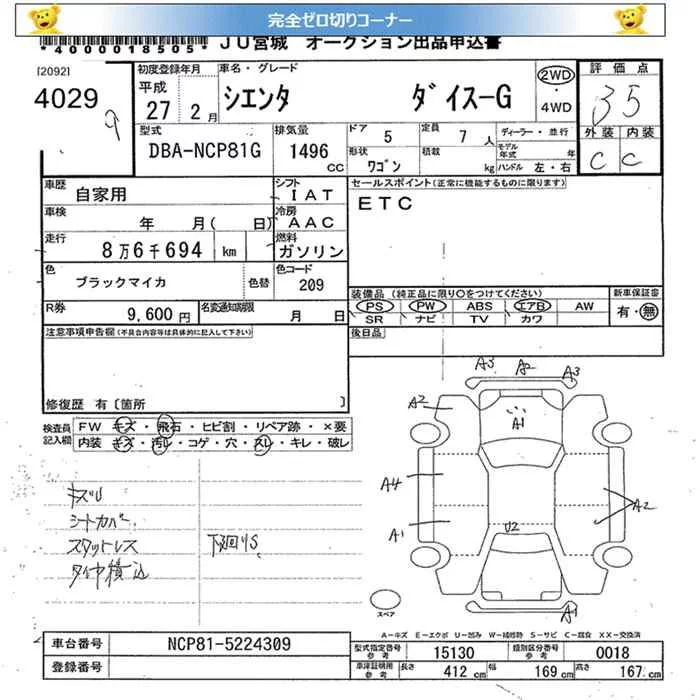 完全ゼロ切りコーナー
*4000018505* JU宮城 オークション出品申込書
[2092]
4029
9
初度登録年月
平成
27 2月
車名・グレード
シエンタ ダイス-G
2WD
・4WD
評価点
35
外装 内装
C C
型式
DBA-NCP81G
排気量
1496 CC
ドア 5
定員 7 人
形状 ワゴン
積載 kg
ディーラー・並行
モデル年式 年
ハンドル 左・右
車歴 自家用
シフト IAT
車検 年 月( 日)
冷房 AAC
走行 8万6千694 km
燃料 ガソリン
色 ブラックマイカ 色替
色コード 209
R券 9,600円
名変通知期限 月 日
セールスポイント(正常に機能するものに限ります)
ETC
装備品(純正品に限り○をつけてください)
PS PW ABS エアB AW
SR ナビ TV カワ
新車保証書
有・無
後日品
注意事項申告欄(不具合内容等は具体的に記入して下さい)
修復歴 有〔箇所 〕
検査員記入欄
FW キズ・飛石・ヒビ割・リペア跡・×要
内装 キズ・汚レ・コゲ・穴・スレ・キレ・破レ
シートカバー
スタットレス
タイヤ積込
下廻りS
A3 A2 A3
A2
A1
A4
A1
A2
U2
A1
スペア
A-キズ E-エクボ U-凹み W-補修跡 S-サビ C-腐食 XX-交換済
車台番号 NCP81-5224309
登録番号
型式指定番号参考 15130
類別区分番号参考 0018
車庫証明用参考 長さ 412 cm 幅 169 cm 高さ 167 cm